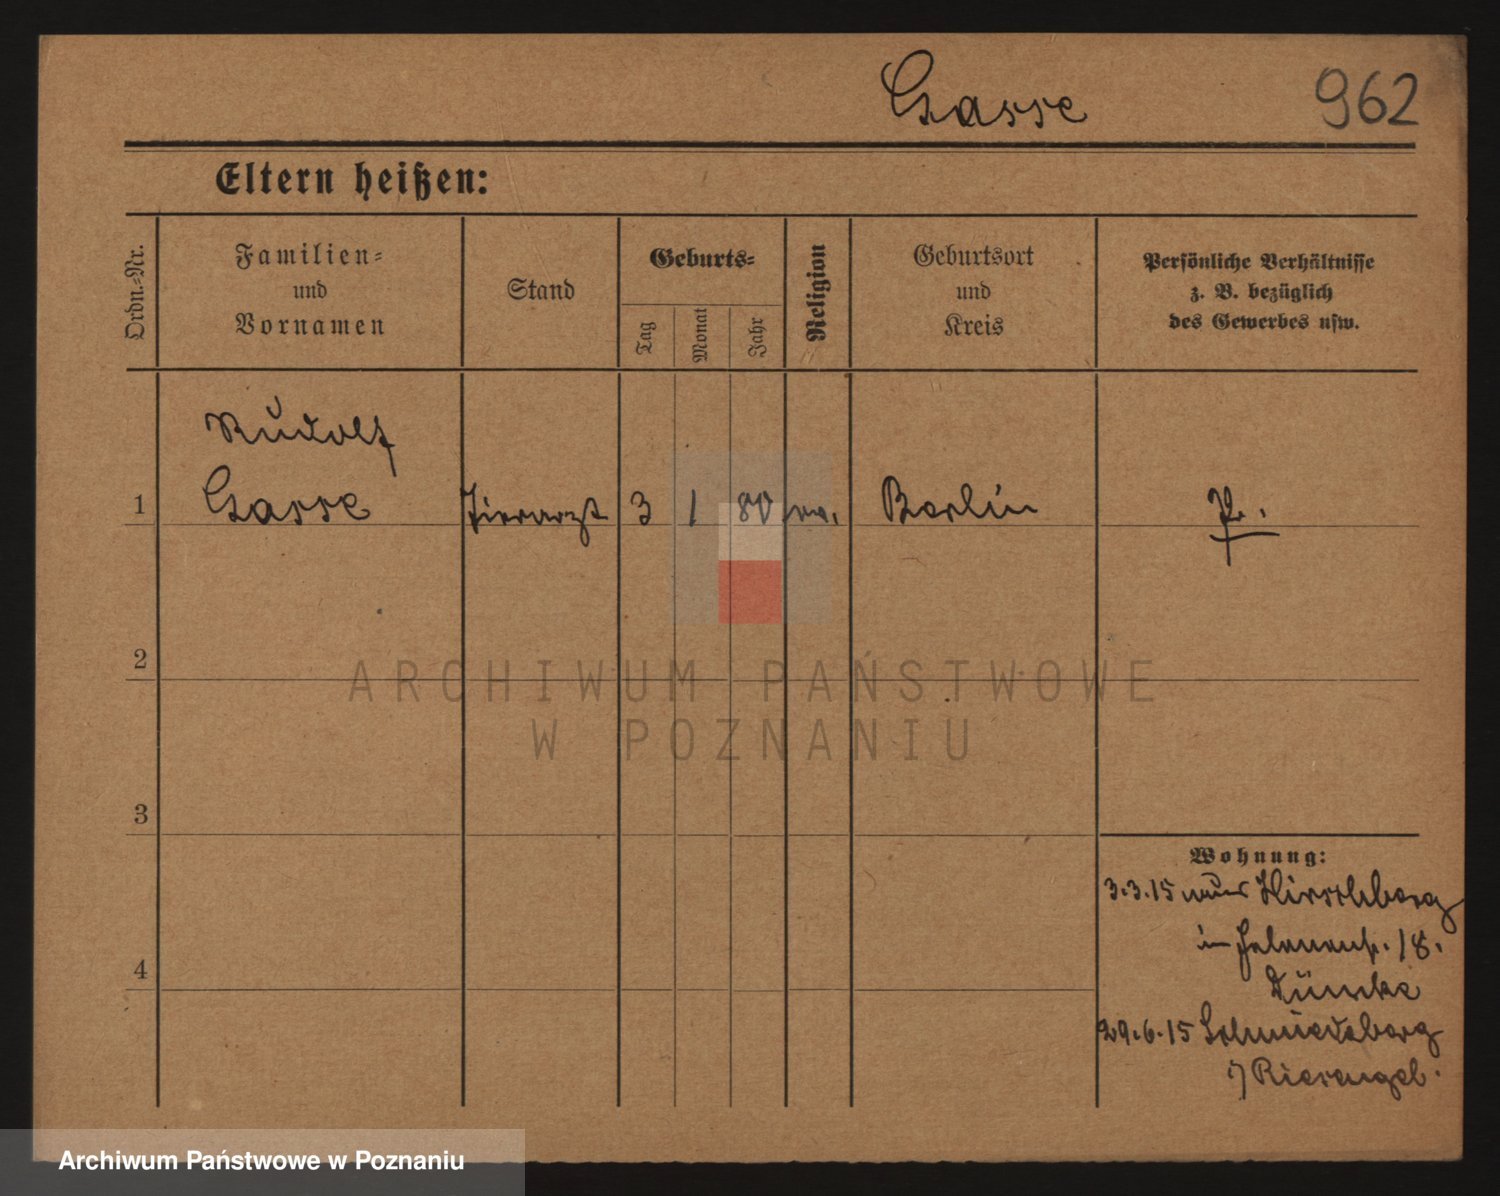 Gasse
962
Eltern heißen:
Ordn.-Nr.
Familien-
und
Vornamen
Stand
Geburts-
Tag
Monat
Jahr
Religion
Geburtsort
und
Kreis
Persönliche Verhältnisse
z. B. bezüglich
des Gewerbes usw.
Rudolf
1 Gasse Tierarzt 3 1 80 ev. Berlin Pr.
2
ARCHIWUM PAŃSTWOWE
W POZNANIU
3
Wohnung:
3.3.15 Hirschberg
in 18.
4
29.6.15 Schmiedeberg
i/ Riesengeb.
Archiwum Państwowe w Poznaniu